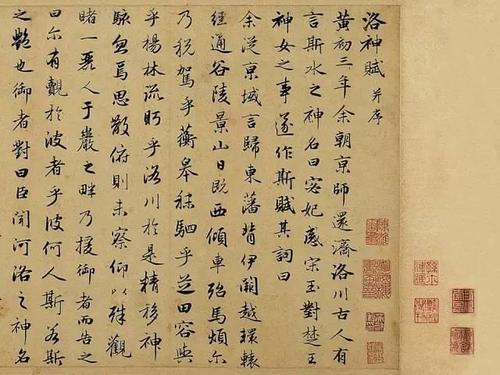 洛神賦 并序
黃初三年余朝京師還濟洛川古人有
言斯水之神名曰宓妃感宋玉對楚王
神女之事遂作斯賦其詞曰
余從京域言歸東藩背伊闕越轘轅
經通谷陵景山日既西傾車殆馬煩尔
乃税駕乎蘅皋秣駟乎芝田容與
乎楊林流盻乎洛川於是精移神
駭忽焉思散俯則未察仰以殊觀
睹一麗人于巖之畔乃援御者而告之
曰尔有覿於彼者乎彼何人斯若斯
之艷也御者對曰臣聞河洛之神名